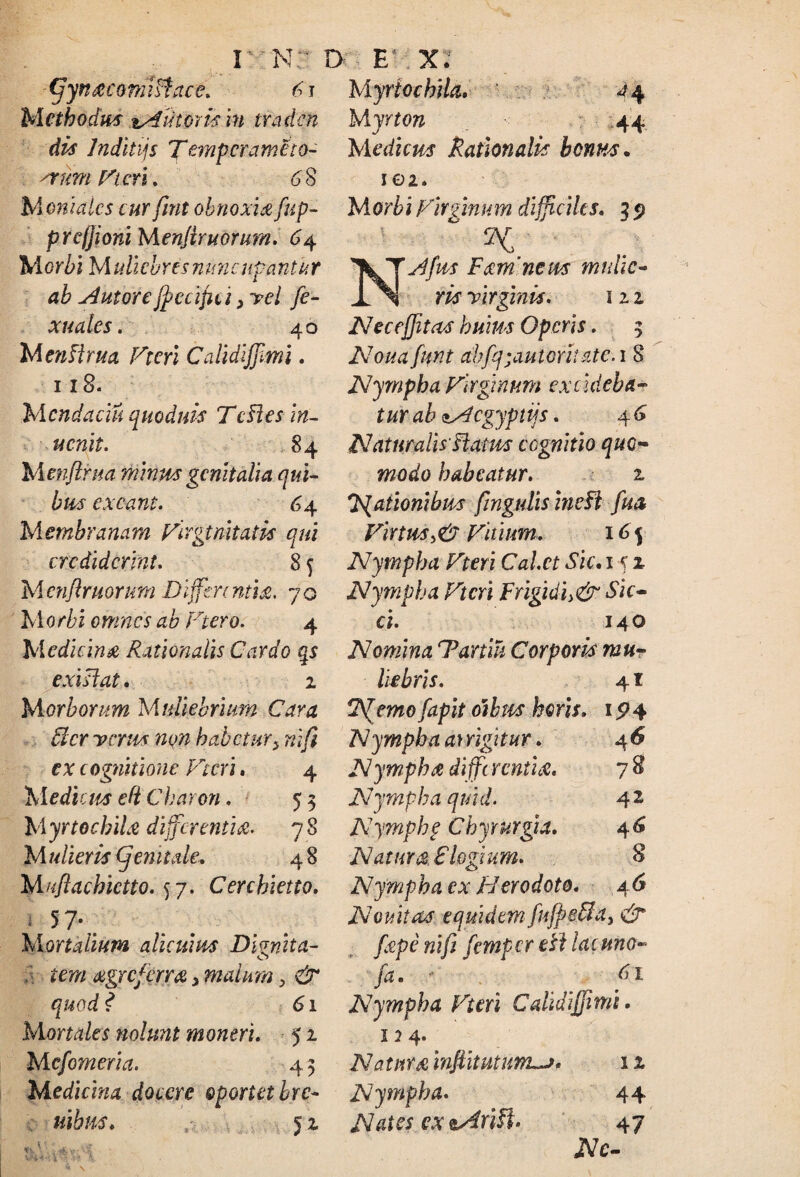 INDEX.
GynæcomiStace. 61
Methodus Autoris in traden
dis Inditijs Temperamēto-
rum Vteri. 68
Moniales cur sint obnoxiæ sup-
pressioni Menstruorum. 64
Morbi Muliebres nuncupantur
ab Autore specifici, vel se-
xuales. 40
Menstrua Vteri Calidissimi.
118.
Mendaciū quoduis Testes in-
uenit. 84
Menstrua minus genitalia qui-
bus exeant. 64
Membranam Virgtnitatis qui
crediderint. 85
Menstruorum Differentiæ. 70
Morbi omnes ab Vtero. 4
Medicinæ Rationalis Cardo qs
existat. 2
Morborum Muliebrium Cara
cter verus non habetur, nisi
ex cognitione Vteri. 4
Medicus est Charon. 53
Myrtochilæ differentiæ. 78
Mulieris Genitale. 48
Mustachietto. 57. Cerchietto.
57.
Mortalium alicuius Dignita-
tem ægreferræ, malum, &
quod? 61
Mortales nolunt moneri. 52
Mesomeria. 43
Medicina docere oportet bre-
uibus. 52
Myrtochila. 44
Myrton 44
Medicus Rationalis bonus.
102.
Morbi Virginum difficiles. 39
N
NAsus Fæmineus mulie-
ris virginis. 122
Necessitas huius Operis. 3
Noua sunt absq; autoritate. 18
Nympha Virginum excideba-
tur ab Aegyptijs. 46
Naturalis status cognitio quo-
modo habeatur. 2
Nationibus singulis inest sua
Virtus, & Vitium. 165
Nympha Vteri Cal. et Sic. 152
Nympha Vteri Frigidi, & Sic-
ci. 140
Nomina Partiū Corporis mu-
liebris. 41
Nemo sapit oībus horis. 194
Nympha arrigitur. 46
Nymphæ differentiæ. 78
Nympha quid. 42
Nymphę Chyrurgia. 46
Naturæ Elogium. 8
Nympha ex Herodoto. 46
Nouitas equidem suspecta, &
sæpè nisi semper est lacuno-
sa. 61
Nympha Vteri Calidissimi.
124.
Naturæ institutum. 12
Nympha. 44
Nates ex Arist. 47
Ne-